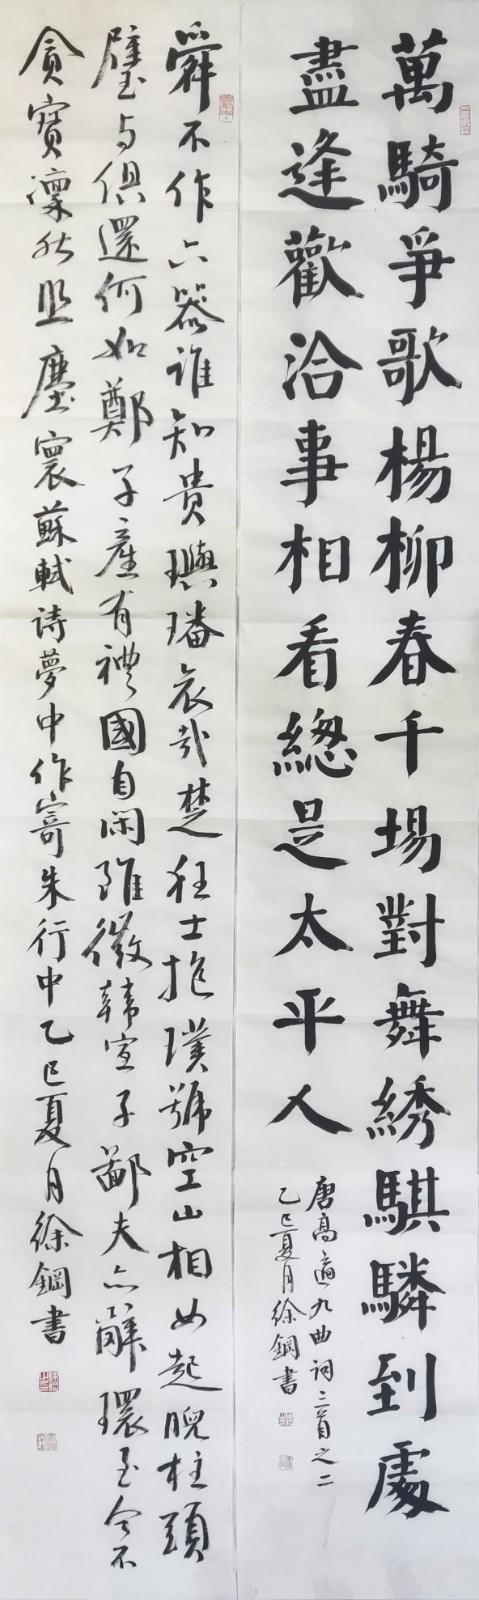 萬騎爭歌楊柳春千場對舞綉騏驎到處
盡逢歡洽事相看緫是太平人
唐高適九曲詞三首之二
乙巳夏月徐鋼書
舜不作六器誰知貴璵璠哀哉楚狂士抱璞號空山相如起睨柱頭
璧与俱還何如鄭子產有禮國自閑雖微韓宣子鄙夫亦辭環至今不
貪寶凜然照塵寰蘇軾詩夢中作寄朱行中乙巳夏月徐鋼書